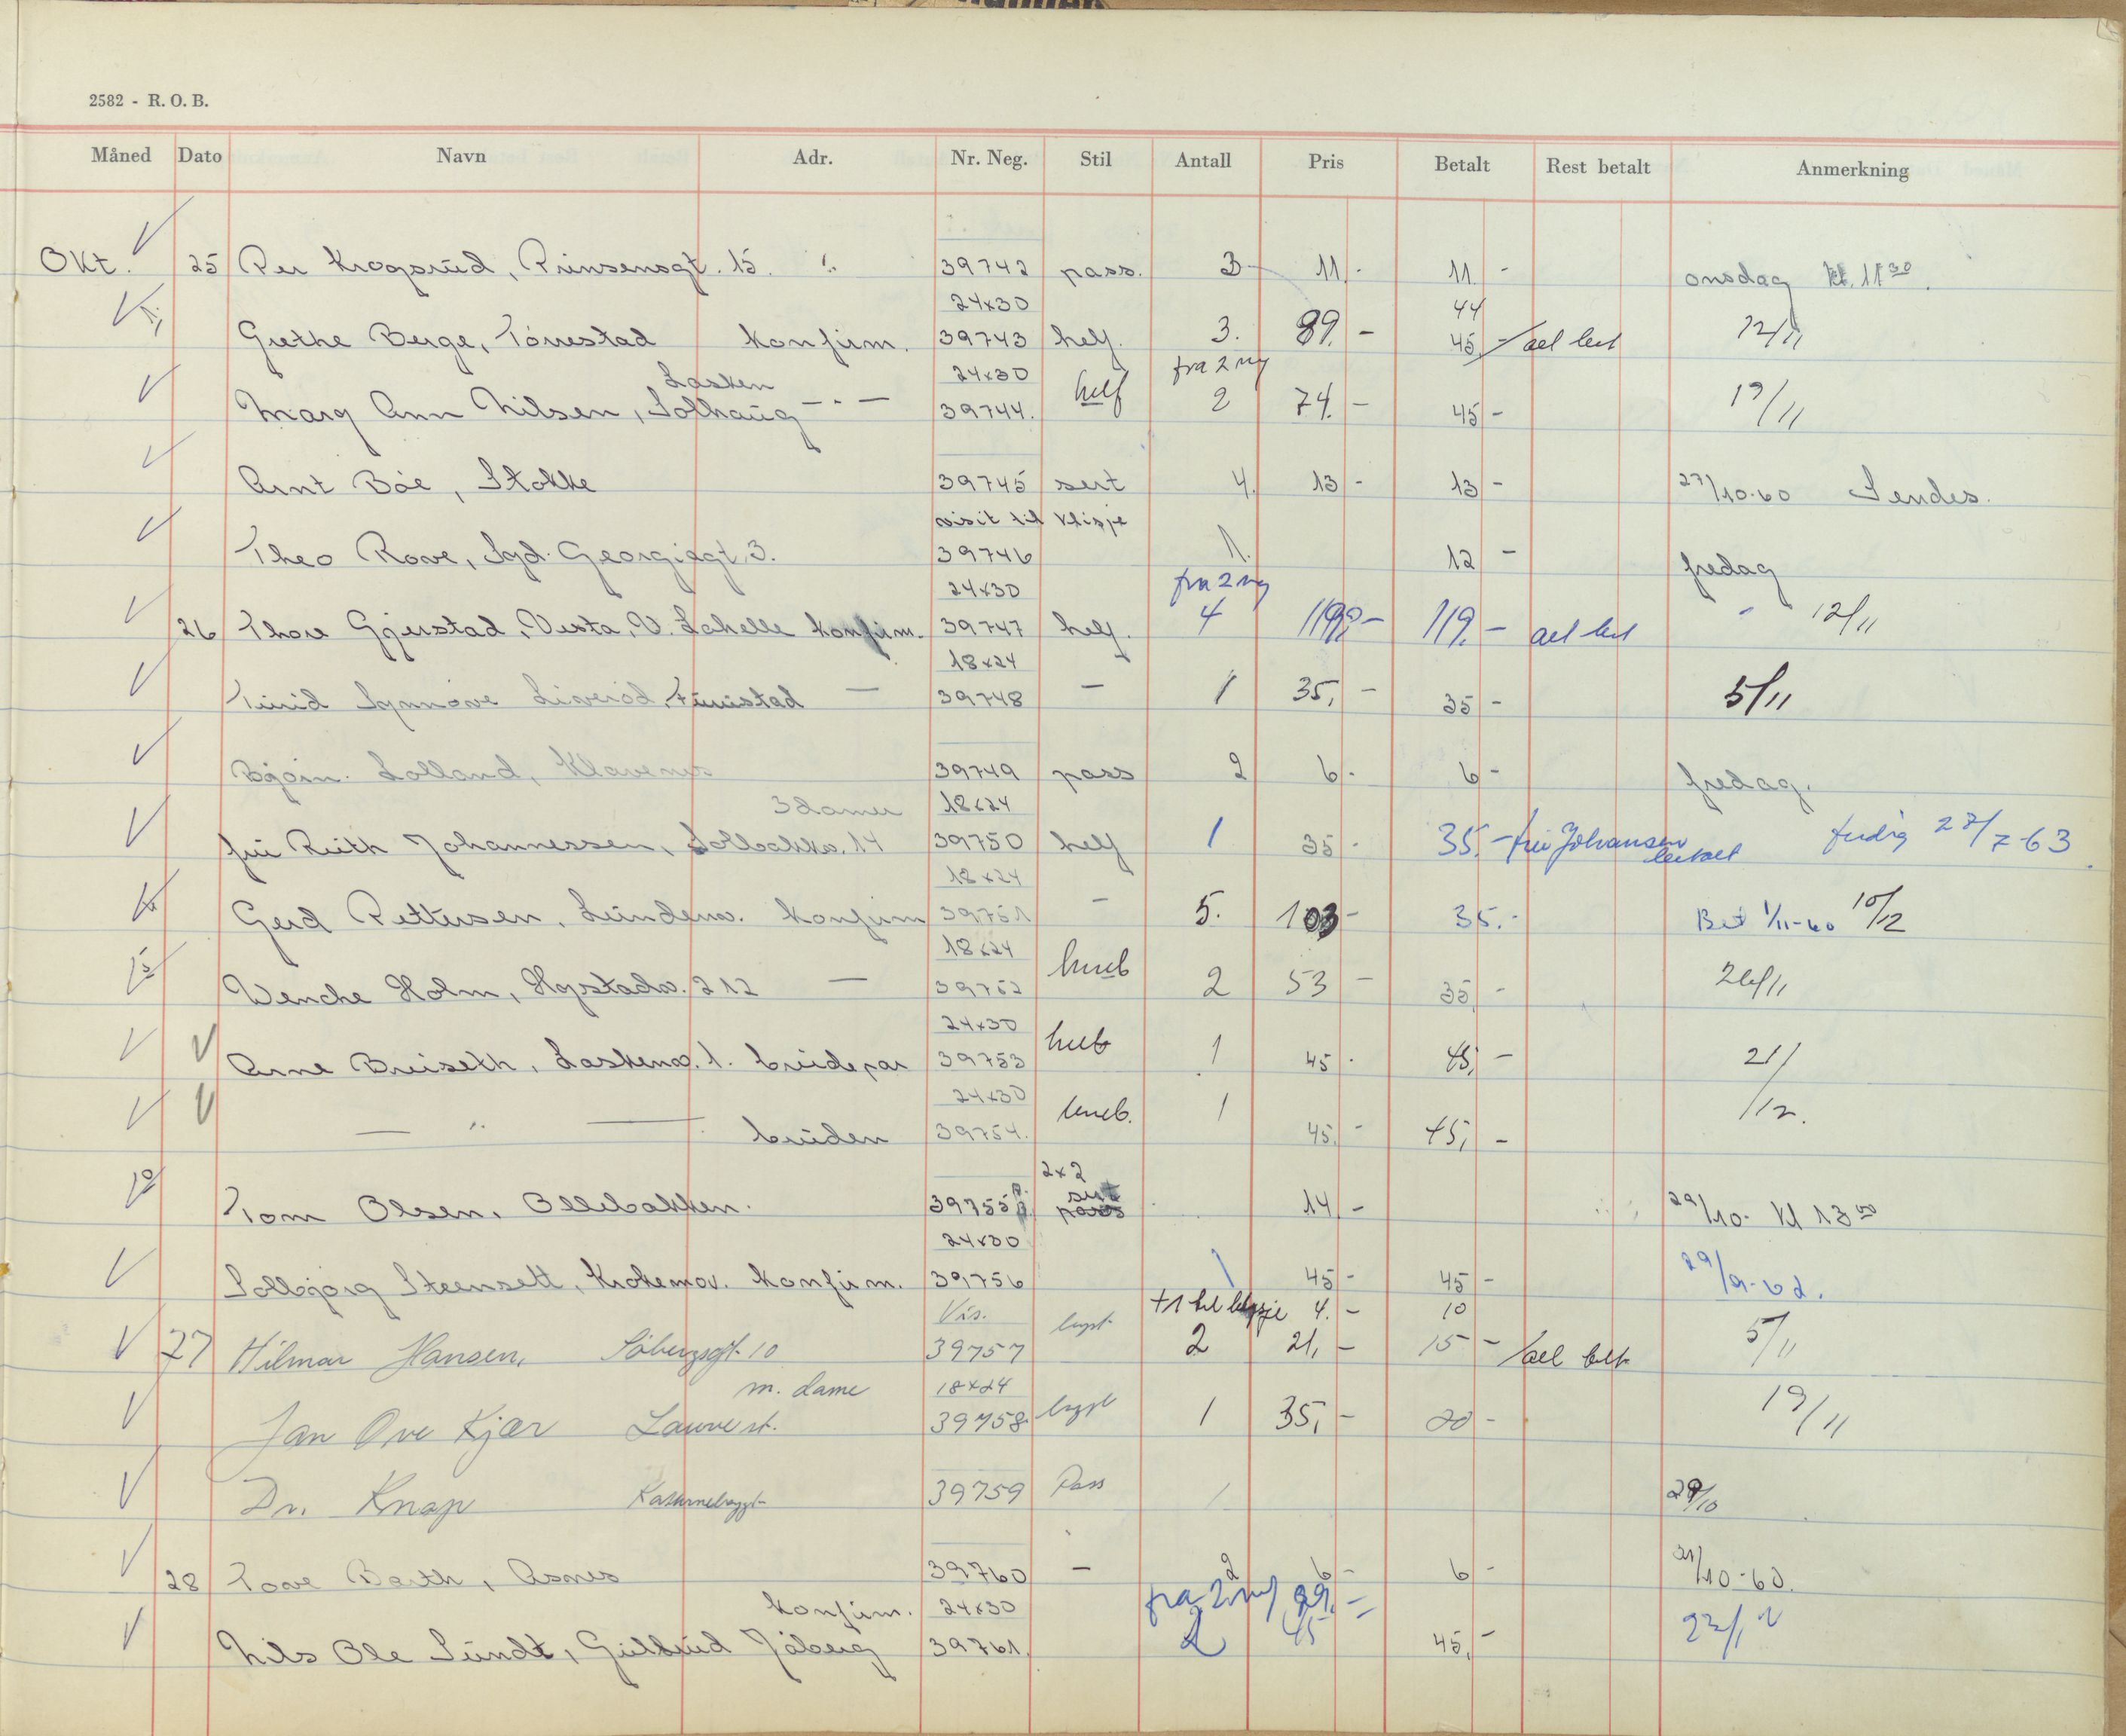 2582 - R. O. B.
Måned Dato Navn Adr. Nr. Neg. Stil Antall Pris Betalt Rest betalt Anmerkning
Okt. 25 Per Krogsrud, Prinsensgt. 15. 39742 pass. 3 11.- 11.- onsdag kl. 11³⁰.
24x30 44
Grethe Berge, Tönnestad Konfirm. 39743 helf. 3. 89.- 45.- 12/11
Lasken 24x30 fra 2 neg
Mary Ann Nilsen, Solhaug - " - 39744. helf 2 74.- 45- 19/11
Arnt Böe, Stokke 39745 sert 4. 13- 13- 27/10-60 Sendes.
visit til klisje
Theo Rove, 3. 39746 1. 12- fredag
24x30 fra 2 neg
26 Thore Gjerstad, Vesta, V. Konfirm. 39747 helf. 4 119,- 119.- 12/11
18x24
Turid Synnöve Furustad — 39748 — 1 35,- 35- 5/11
Björn Lolland, Klavenes 39749 pass 2 6- 6- fredag.
3 damer 18x24
fru Ruth Johannessen, Solbakkv. 14 39750 helf 1 35- 35.- fru Johansen betalt ferdig 27/7-63
18x24
Gerd Pettersen, Lundenv. Konfirm 39751 — 5. 103- 35.- Bet 1/11-60 10/12
18x24
Wenche Holm, 212 — 39752 2 53- 35,- 26/11
24x30
Arne Bruiseth, Laskenv. 1. brudepar 39753 1 45- 45,- 21/
24x30
— " — bruden 39754. 1 45,- 45,- /12.
2x2
sert
Tom Olsen, Ollebakken. 39755 pass 14,- 29/10- kl 13⁰⁰
24x30
Solbjörg Steensett, Krokemov. Konfirm. 39756 1 45- 45- 29/9-62.
Vis. +1 til klisje 4.- 10
27 Hilmar Hansen, Såbergsgt. 10 39757 2 21,- 15- 5/11
m. dame 18x24
Jan Ove Kjær Lauvest. 39758 1 35,- 20- 19/11
Dr. Knap 39759 Pass 1 29/10
28 Tove Barth, Asnes 39760 — 2 6- 6- 31/10-60.
konfirm. 24x30 fra 2 neg 99.-
Nils Ole Sundt, Gulbrud Jåberg 39761. 2 45 45,-